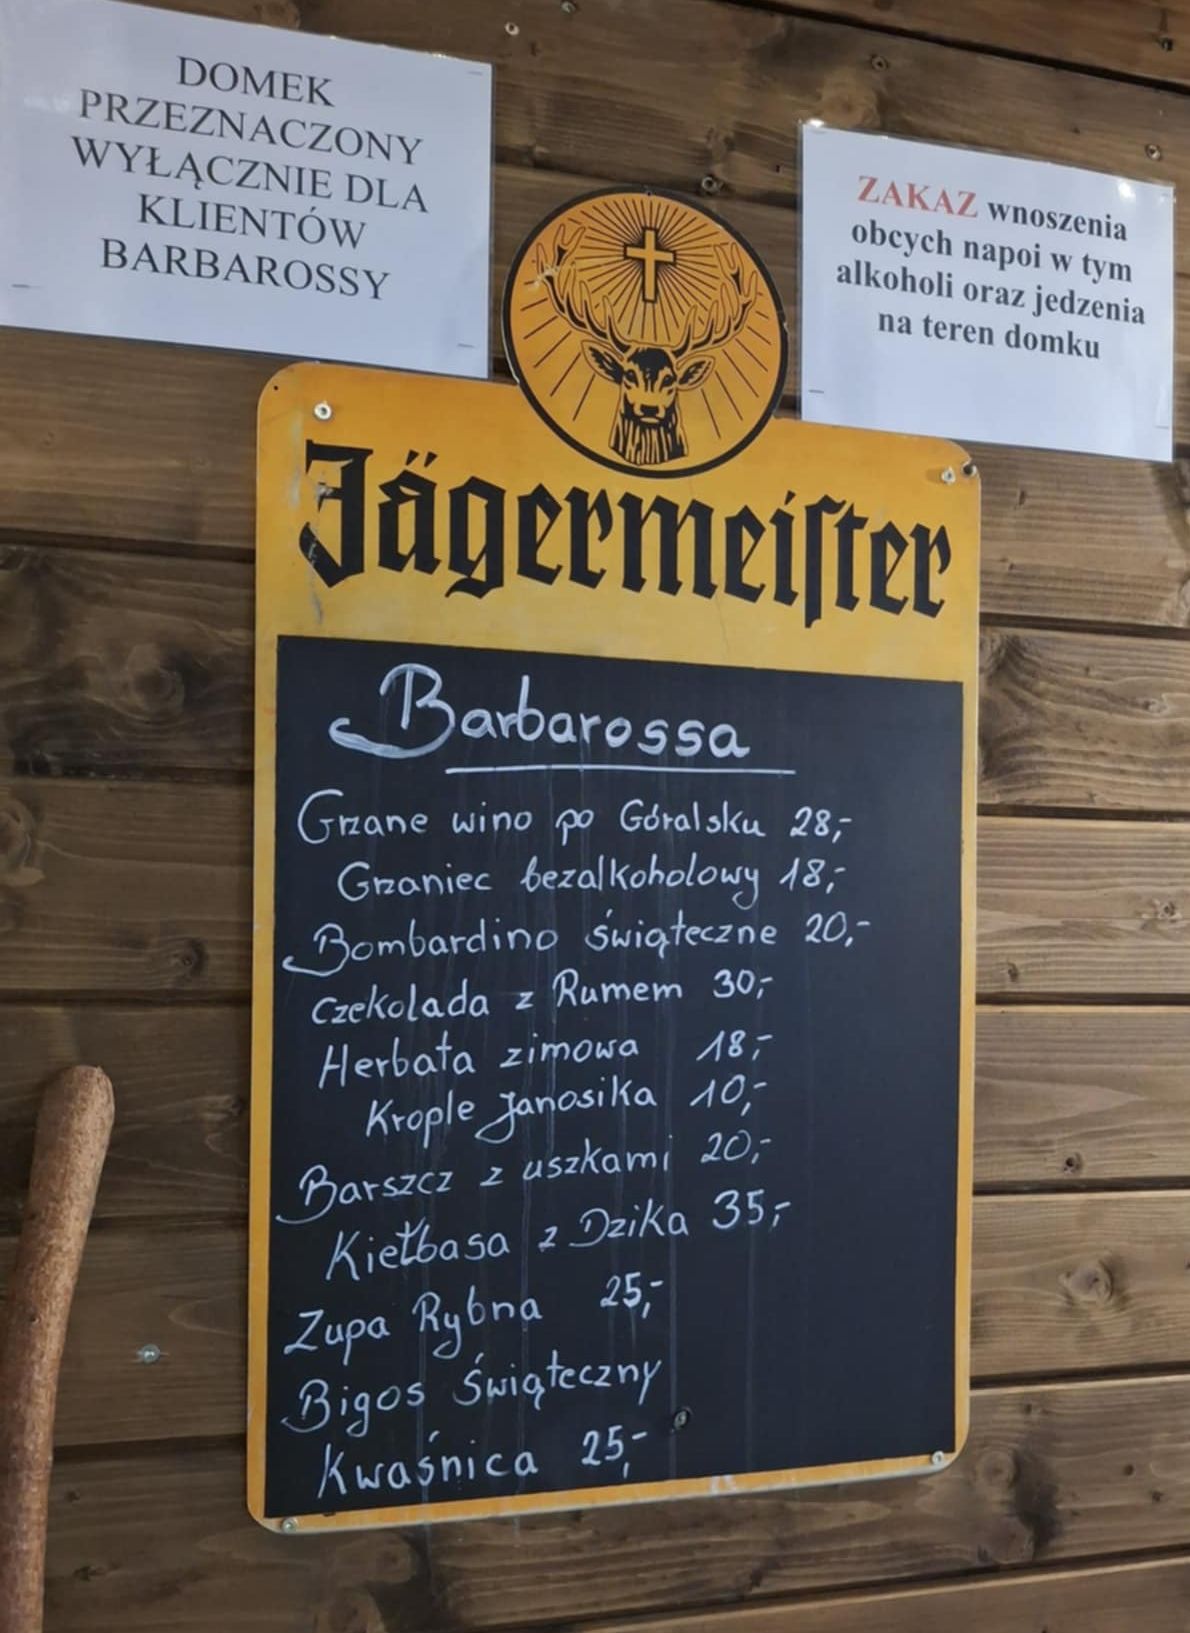 DOMEK
PRZEZNACZONY
WYŁĄCZNIE DLA
KLIENTÓW
BARBAROSSY
ZAKAZ wnoszenia
obcych napoi w tym
alkoholi oraz jedzenia
na teren domku
Jägermeiſter
Barbarossa
Grzane wino po Góralsku 28,-
Grzaniec bezalkoholowy 18,-
Bombardino świąteczne 20,-
Czekolada z Rumem 30,-
Herbata zimowa 18,-
Krople Janosika 10,-
Barszcz z uszkami 20,-
Kiełbasa z Dzika 35,-
Zupa Rybna 25,-
Bigos Świąteczny
Kwaśnica 25,-